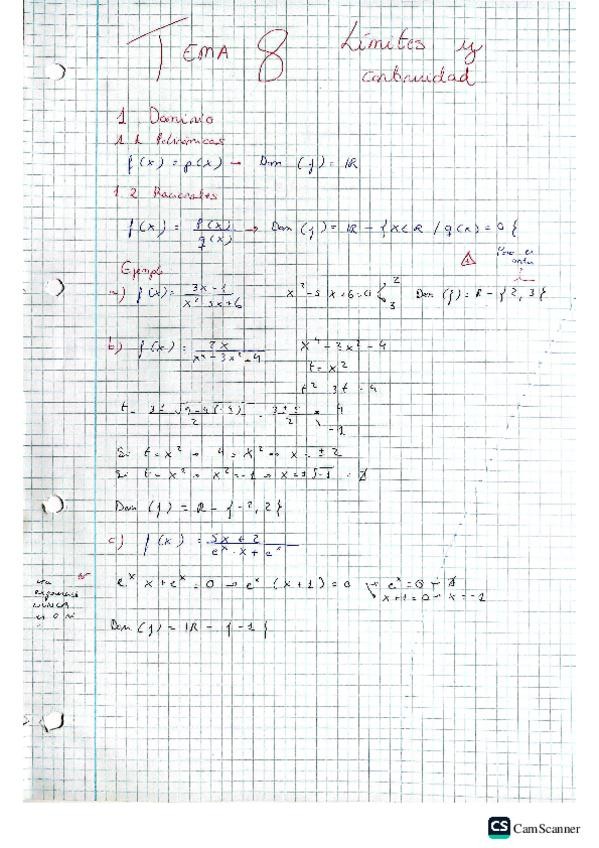 TEMA 8 Límites y
continuidad
1. Dominio
1.1. Polinómicas
f(x) = p(x) → Dom (f) = IR
1.2 Racionales
f(x) = P(x)/q(x) → Dom (f) = IR - {x∈R / q(x) = 0}
Ejemplo
a) f(x) = 3x-1/x²-5x+6 x²-5x+6=0 < 2 3 Dom (f) = R - {2, 3}
b) f(x) = 7x/x⁴-3x²-4 x⁴-3x²-4
t = x²
t² 3t - 4
t = 3±√9-4(-4)/2 = 3±5/2 4 -1
Si t = x² → 4 = x² → x = ±2
Si t = x² → x² = -1 → x = ±√-1 = ∄
Dom (f) = R - {-2, 2}
c) f(x) = 5x+2/eˣ·x+eˣ
eˣ x + eˣ = 0 → eˣ (x+1) = 0 eˣ = 0 → ∄
x+1 = 0 → x = -1
una
exponencial
nunca
es 0
Dom (f) = IR - {-1}
CS CamScanner